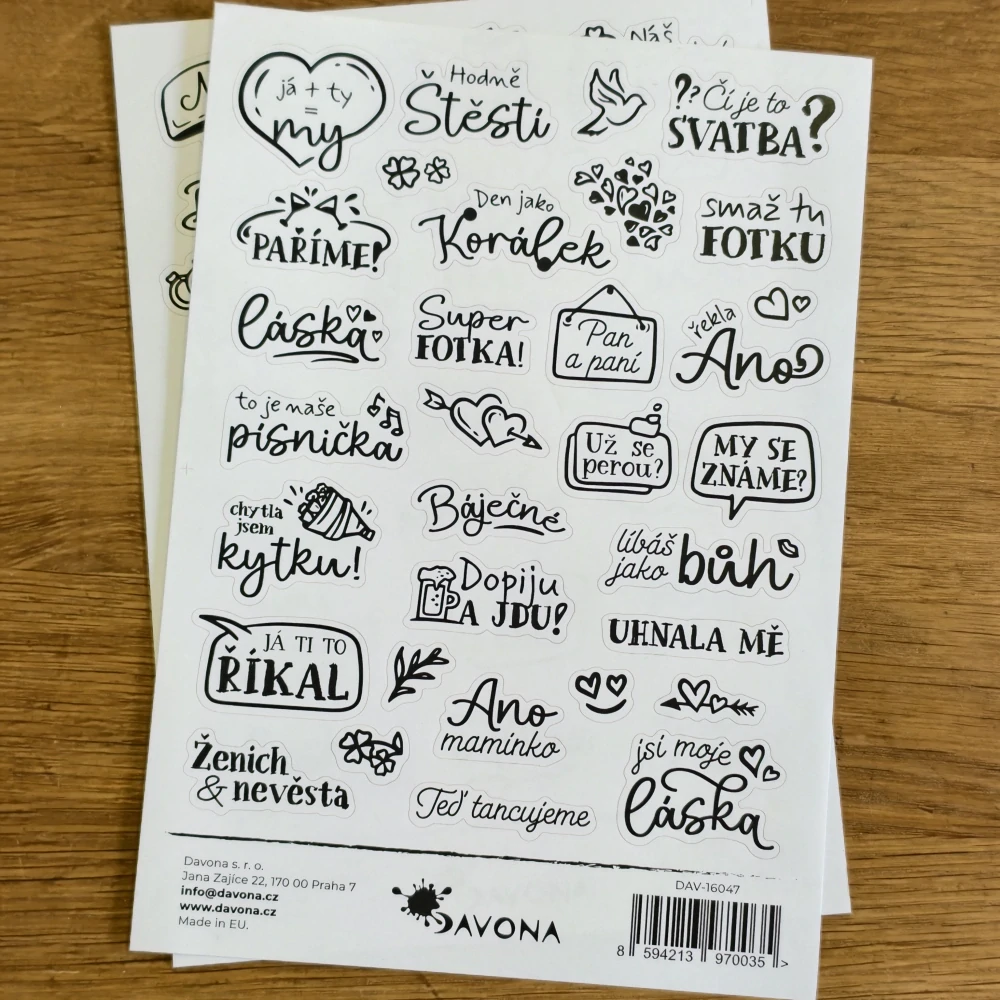 Náš
já + ty
=
my
Hodně
Štěstí
?? Čí je to
SVATBA?
PAŘÍME!
Den jako
Korálek
smaž tu
FOTKU
láska
Super
FOTKA!
Pan
a paní
řekla
Ano
to je naše
písnička
Už se
perou?
MY SE
ZNÁME?
chytla
jsem
kytku!
Báječné
líbáš
jako bůh
Dopiju
A JDU!
UHNALA MĚ
JÁ TI TO
ŘÍKAL
Ano
maminko
jsi moje
láska
Ženich
& nevěsta
Teď tancujeme
Davona s. r. o.
Jana Zajíce 22, 170 00 Praha 7
info@davona.cz
www.davona.cz
Made in EU.
DAVONA
DAV-16047
8 594213 970035 >